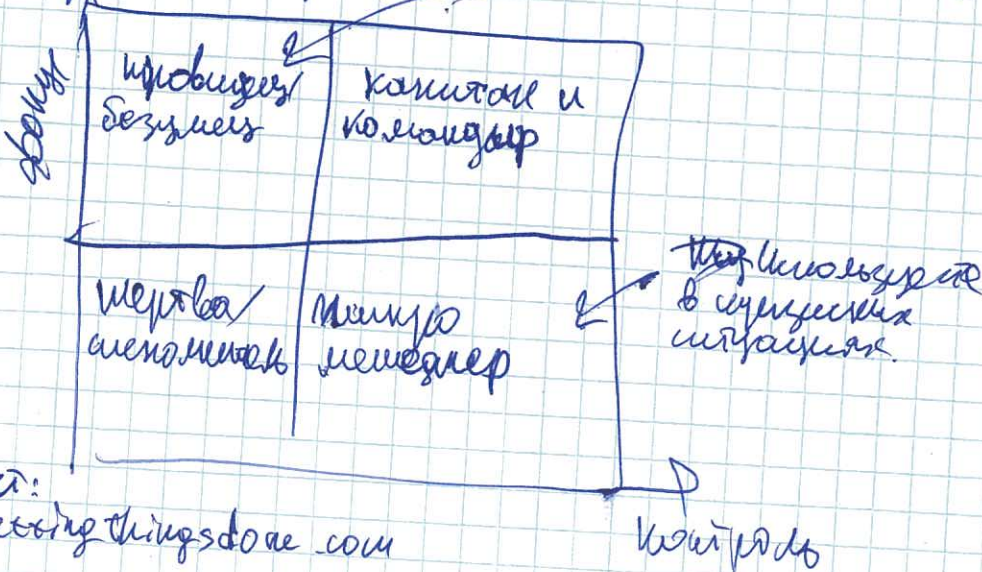 фокус
провидец/
безумец
капитан и
командир
жертва/
исполнитель
микро
менеджер
Используется
в кризисных
ситуациях.
Контроль
gthingsdone.com